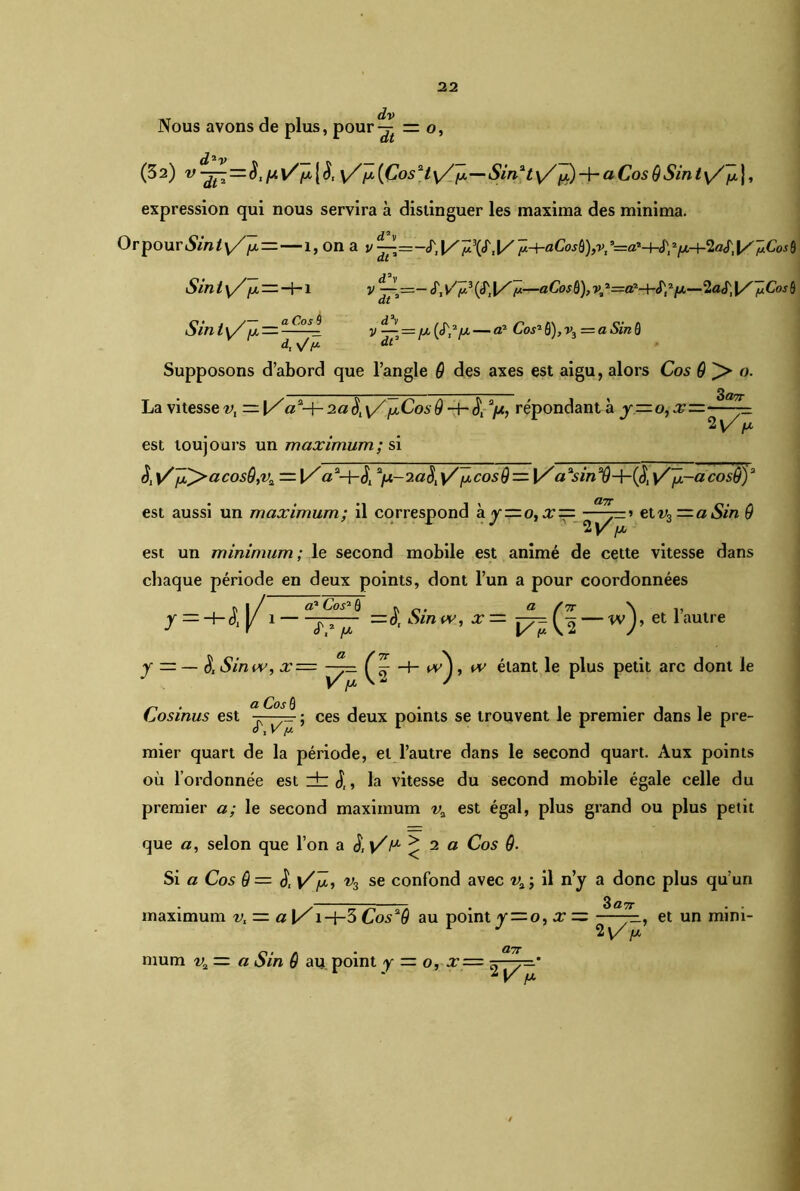 22
Nous avons de plus, pour dv/dt = o,
(32) v d²v/dt² = δ₁μ√μ{δ₁√μ(Cos²t√μ—Sin²t√μ)+aCosθSint√μ},
expression qui nous servira à distinguer les maxima des minima.
Or pour Sint√μ=—1, on a v d²v/dt²=-δ₁√μ³(δ₁√μ+aCosθ),v₁²=a²+δ₁²μ+2aδ₁√μCosθ
Sint√μ=+1 v d²v/dt²=-δ₁√μ³(δ₁√μ—aCosθ),v₂²=a²+δ₁²μ—2aδ₁√μCosθ
Sint√μ=a Cosθ/d₁√μ v d²v/dt²=μ(δ₁²μ—a² Cos²θ),v₃=a Sin θ
Supposons d'abord que l'angle θ des axes est aigu, alors Cos θ > o.
La vitesse v₁ = √a²+2aδ₁√μCosθ+δ₁²μ, répondant à y=o, x=3aπ/2√μ
est toujours un maximum; si
δ₁√μ>acosθ,v₂ = √a²+δ₁²μ-2aδ₁√μcosθ = √a²sin²θ+(δ₁√μ-acosθ)²
est aussi un maximum; il correspond à y=o, x= aπ/2√μ, et v₃ = a Sin θ
est un minimum; le second mobile est animé de cette vitesse dans
chaque période en deux points, dont l'un a pour coordonnées
y = +δ₁√1 — a² Cos²θ/δ₁²μ =δ₁ Sin w, x = a/√μ (π/2 — w), et l'autre
y = — δ₁ Sin w, x= a/√μ (π/2 + w), w étant le plus petit arc dont le
Cosinus est a Cosθ/δ₁√μ; ces deux points se trouvent le premier dans le pre-
mier quart de la période, et l'autre dans le second quart. Aux points
où l'ordonnée est ± δ₁, la vitesse du second mobile égale celle du
premier a; le second maximum v₂ est égal, plus grand ou plus petit
que a, selon que l'on a δ₁√μ ⪌ 2 a Cos θ.
Si a Cos θ = δ₁√μ, v₃ se confond avec v₂; il n'y a donc plus qu'un
maximum v₁ = a√1+3 Cos²θ au point y=o, x = 3aπ/2√μ, et un mini-
mum v₂ = a Sin θ au point y = o, x= aπ/2√μ.